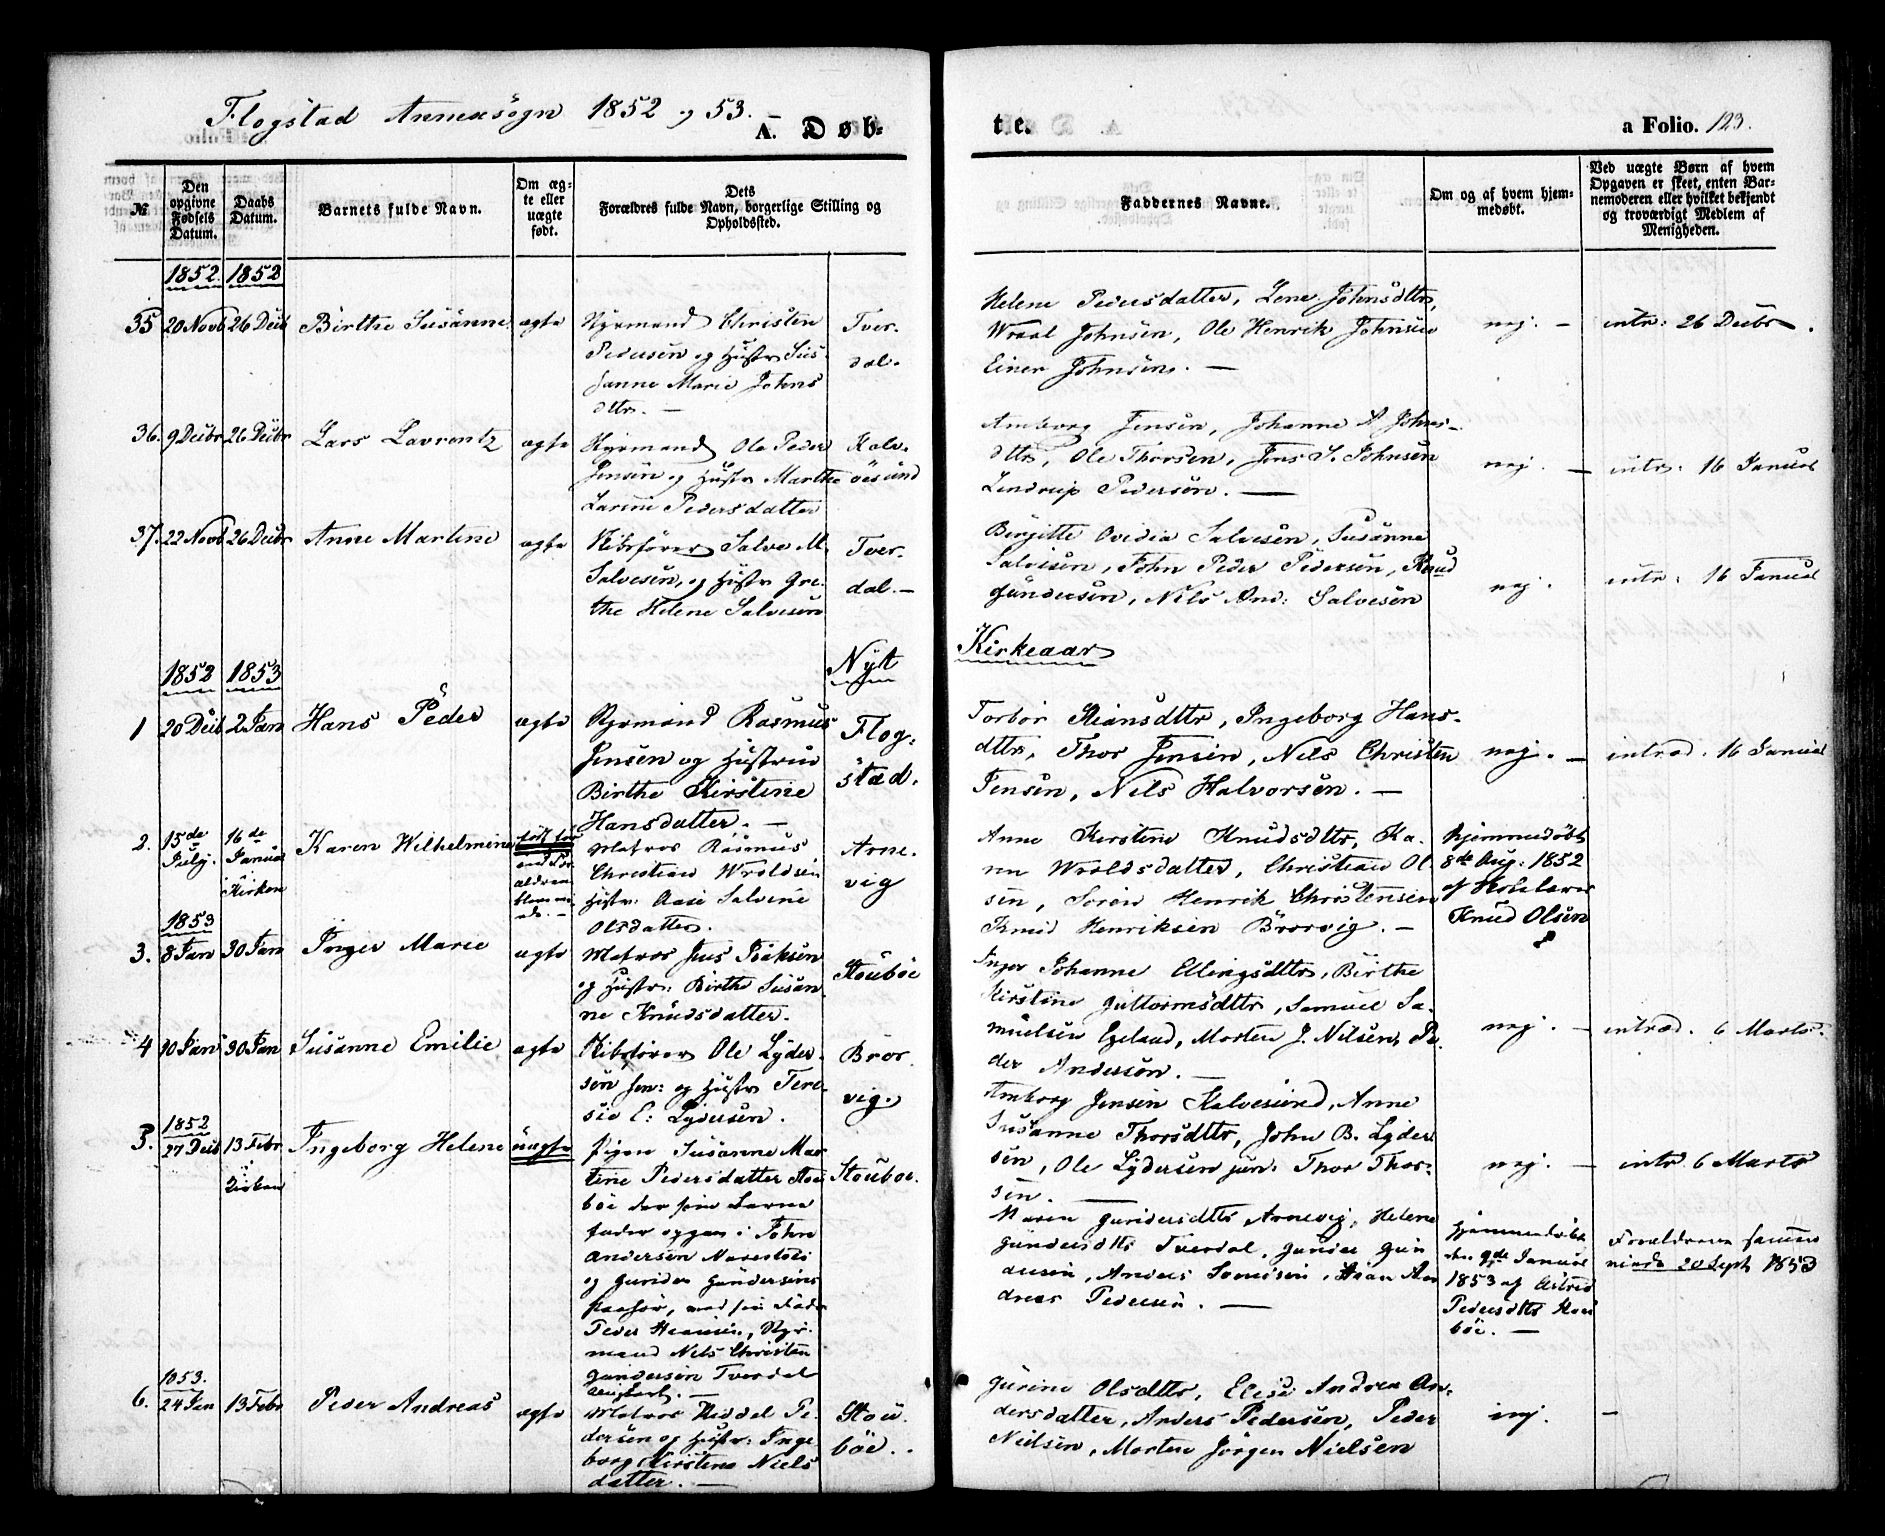 Flogstad Annexsogn 1852 og 53. –
A. Døb-
te.
a Folio. 123.
№
Den opgivne Fødsels Datum.
Daabs Datum.
Barnets fulde Navn.
Om ægte eller uægte født.
Dets Forældres fulde Navn, borgerlige Stilling og Opholdssted.
Faddernes Navne.
Om og af hvem hjemmedøbt.
Ved uægte Børn af hvem Opgaven er skeet, enten Barnemoderen eller hvilket bekjendt og troværdigt Medlem af Menigheden.
1852. 1852
35 20 Novb 26 Decb Birthe Susanne ægte
Christen
Pedersen og Hustr Sus-
sanne Marie Johns
dttr. –
Tver-
dal.
Helene Pedersdatter, Lene Johnsdttr,
Wraal Johnsen, Ole Henrik Johnsen
Einer Johnsen. –
nej. – intr: 26 Decbr.
36. 9 Decbr 26 Decbr Lars Lavrentz ægte
Ole Peder
Jensen og Hustr Marthe
Larine Pedersdatter
Kalv-
öesund
Amborg Jensen, Johanne A Johns-
dttr, Ole Thorsen, Jens S. Johnsen
Lendrup Pedersen. –
nej. – intr: 16 Januar
37. 22 Novb 26 Decbr Anne Martine ægte
Skibsfører Salve M.
Salvesen, og Hustr Gre-
the Helene Salvesen
Tver-
dal. –
Birgitte Ovidia Salvesen, Susanne
Salvesen, John Peder Pedersen, Knud
Gundersen, Nils And: Salvesen
nej. intr: 16 Januar
1852 1853
Nyt Kirkeaar
1 20 Decb 2 Jan Hans Peder ægte
Rasmus
Jensen og Hustrue
Birthe Kirstine
Hansdatter. –
Flog-
stad.
Torbor Stiansdttr, Ingeborg Hans-
dttr, Thor Jensen, Nils Christen
Jensen, Nils Halvorsen. –
nej. – introd. 16 Januar
2. 15de July. 16de Januar Kirken Karen Wilhelmine
født før
end For-
ældrene
Matros Rasmus
Christian Wroldsen
Hustr: Aase Salvine
Olsdatter.
Arne-
vig
Anne Kirstine Knudsdttr, Ka-
ren Wroldsdatter, Christian Ol-
sen, Soren Henrik Christensen
Knud Henriksen Brorvig. –
hjemmedøbt
8de Aug: 1852
af Skolelærer
Knud Olsen
1853
3. 8 Jan 30 Jan Inger Marie ægte
Matros Jens Isaksen
og Hustr: Birthe Susan
ne Knudsdatter.
Stouböe
Inger Johanne Ellingsdttr, Birthe
Kirstine Guttormsdttr, Samuel Sa-
muelsen Egeland, Morten J. Nilsen, Pe-
der Andersen. –
nej. – introd. 6 Marts.
4 10 Jan 30 Jan Susanne Emilie ægte
Skibsfører Ole Lyder-
sen sen: og Hustr Tere-
sie E: Lydersen.
Bror-
vig.
Amborg Jensen Kalvesund, Anne
Susanne Thorsdttr, John B. Lyder
sen, Ole Lydersen jun: Thor Thor-
sen. –
nej. – intr 6 Marts
1852
5. 27 Decb 13 Febr Kirken Ingeborg Helene uægte
Pigen Susanne Mar-
tine Pedersdatter Stou
böe der som Barne
fader opgav: John
Andersen
og Gunder Gundersens
Peder Hansen,
mand Nils Christen
Gundersen Tverdal
Stouboe.
Maren Gundersdttr Arnevig, Helene
Gundersdttr Tverdal, Gunder Gun
dersen, Anders An
dreas Pedersen. –
Hjemmedøbt
den 9de Januar
1853 af Astrid
Pedersdttr Stou
böe. –
Forældrene
20 Sept 1853
1853.
6. 24 Jan 13 Febr Peder Andreas ægte
Matros Kiddel Pe-
dersen og Hustr: Inge
borg Kirstine Niels
datter. –
Stou-
böe.
Gurine Olsdttr, Elise Andrea An-
dersdatter, Anders Pedersen, Peder
Nielsen, Morten Jörgen Nielsen
nej. –